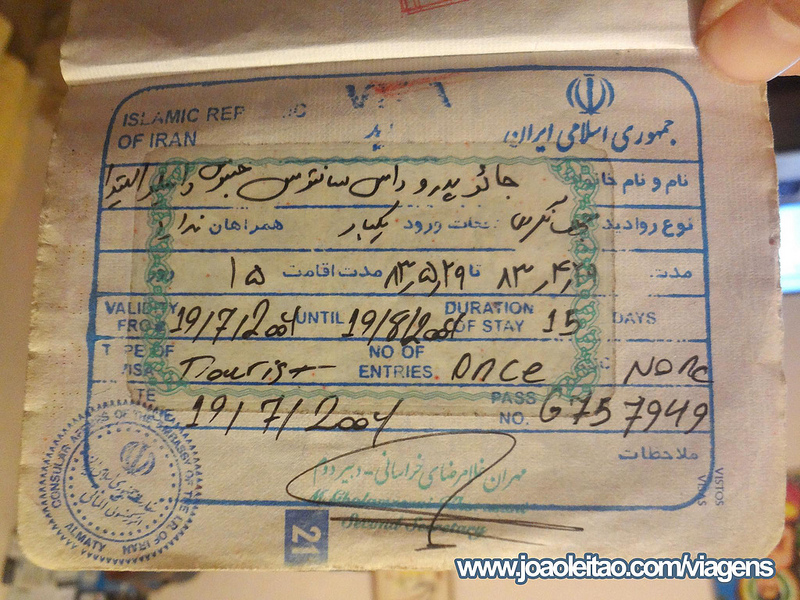 ISLAMIC REP IC
OF IRAN
جمهوری اسلامی ایران
نام و نام خانو
نوع روادید جهانگردی دفعات ورود یکبار همراهان ندارد
مدت ۸۳٫۴٫۲۹ تا ۸۳٫۵٫۲۹ مدت اقامت ۱۵ روز
VALIDITY FROM 19/7/2004 UNTIL 19/8/2004 DURATION OF STAY 15 DAYS
TYPE OF VISA Tourist NO OF ENTRIES. Once None
19/7/2004 PASS NO. G757949
ملاحظات
مهران غلامرضای خراسانی - دبیر دوم
Second Secretary
CONSULAR AFFAIRS OF THE EMBASSY OF THE I.R OF IRAN
ALMATY
21
VISTOS
VISAS
www.joaoleitao.com/viagens